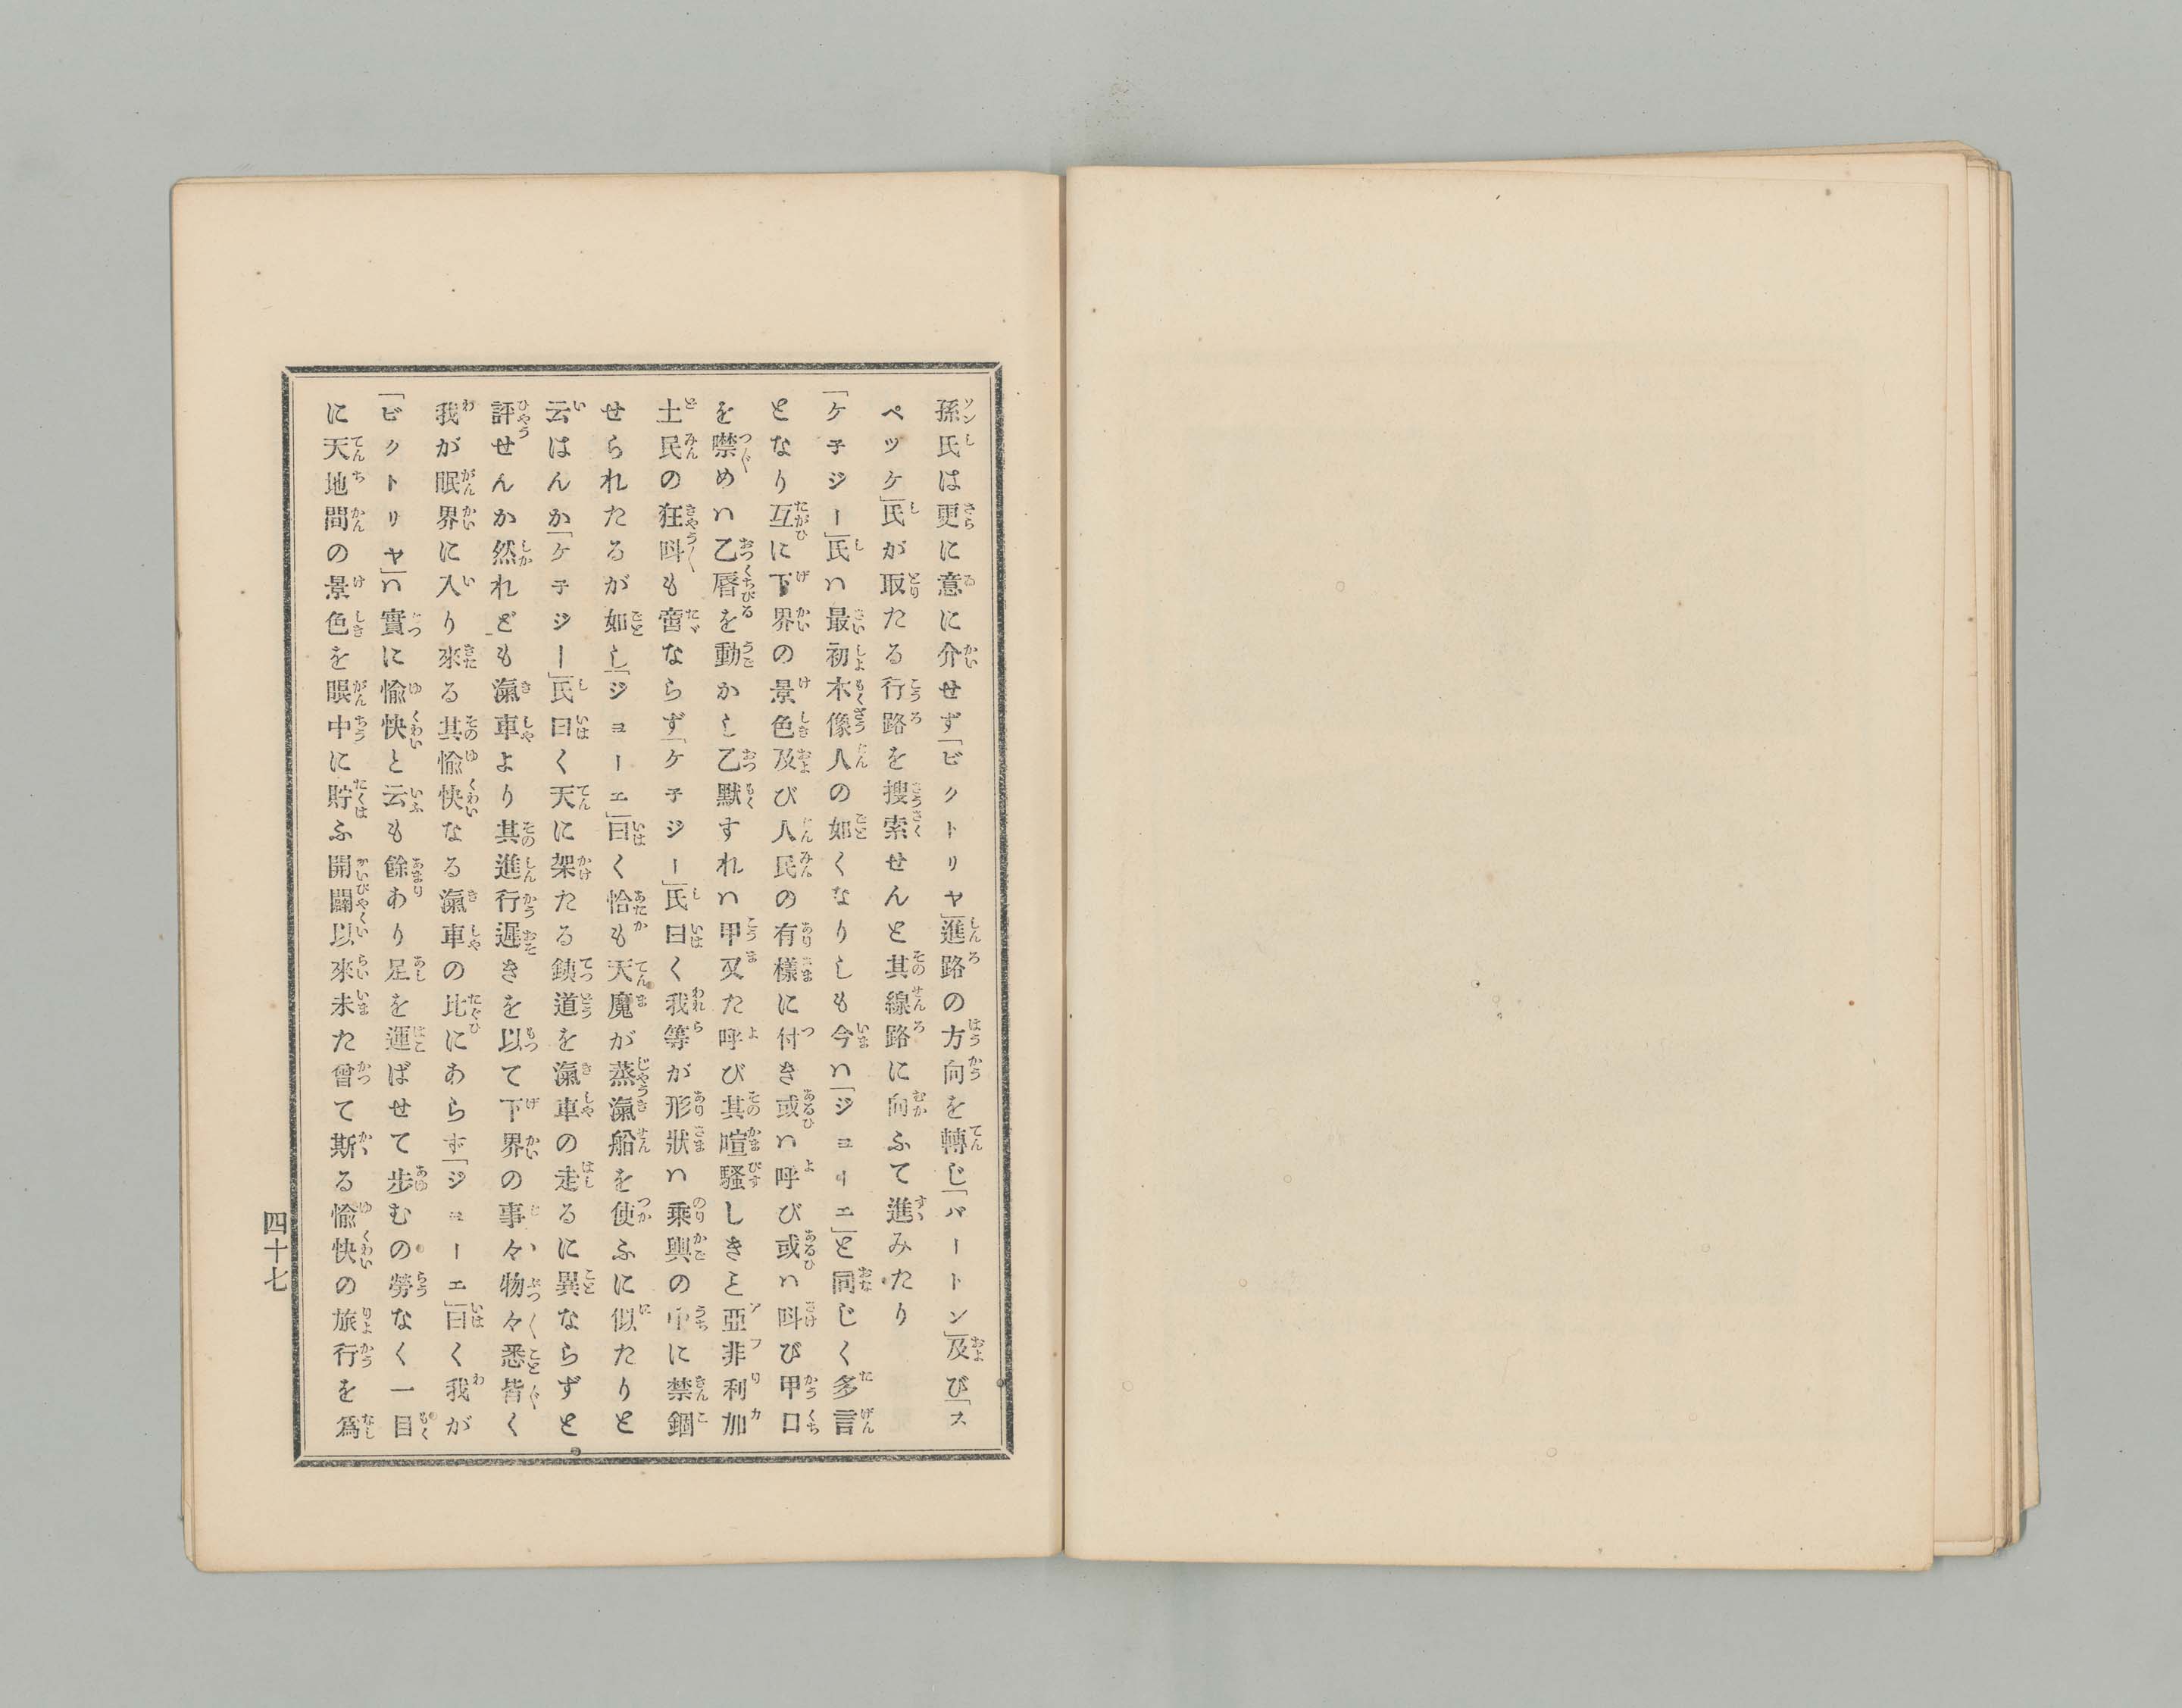 孫氏は更に意に介せず「ビクトリヤ」進路の方向を轉じ「バートン」及び「ス
ペッケ」氏が取たる行路を搜索せんと其線路に向ふて進みたり
「ケ子ジー」氏ハ最初木像人の如くなりしも今ハ「ジヨーエ」と同じく多言
となり互に下界の景色及び人民の有樣に付き或ハ呼び或ハ呌び甲口
を噤めハ乙唇を動かし乙默すれハ甲又た呼び其喧騷しきと亞非利加
土民の狂呌も啻ならず「ケ子ジー」氏曰く我等が形狀ハ乘輿の中に禁錮
せられたるが如し「ジヨーエ」曰く恰も天魔が蒸滊船を使ふに似たりと
云はんか「ケ子ジー」氏曰く天に架たる鐵道を滊車の走るに異ならずと
評せんか然れども滊車より其進行遲きを以て下界の事々物々悉皆く
我が眼界に入り來る其愉快なる滊車の比にあらず「ジヨーエ」曰く我が
「ビクトリヤ」ハ實に愉快と云も餘あり足を運ばせて步むの勞なく一目
に天地間の景色を眼中に貯ふ開闢以來未た曾て斯る愉快の旅行を爲
四十七